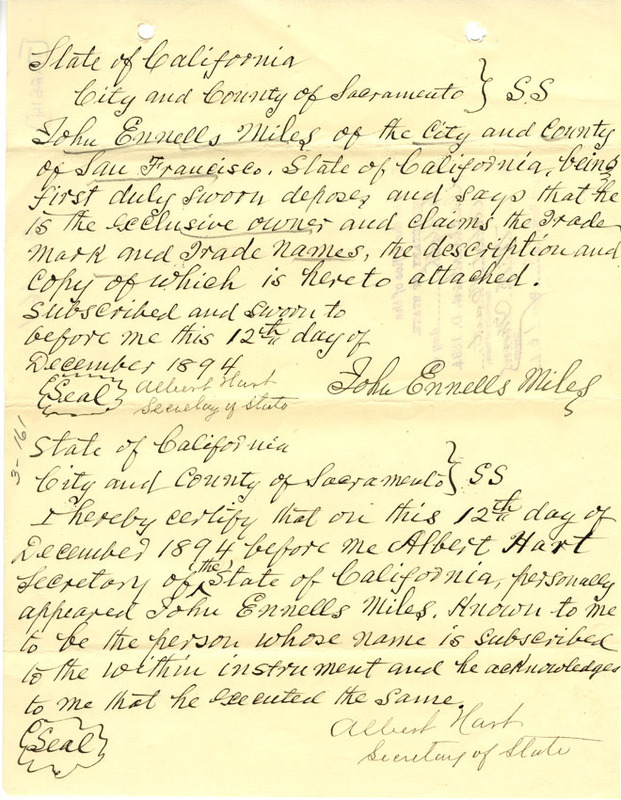 State of California
City and County of Sacramento } SS
John Ennells Miles of the City and County
of San Francisco. State of California, being
first duly sworn deposes and says that he
is the exclusive owner and claims the Trade
Mark and Trade Names, the description and
Copy of which is hereto attached.
Subscribed and sworn to
before me this 12th day of
December 1894
(Seal) Albert Hart
Secretary of State
John Ennells Miles
3-161
State of California
City and County of Sacramento } SS
I hereby certify that on this 12th day of
December 1894 before me Albert Hart
Secretary of the State of California, personally
appeared John Ennells Miles. Known to me
to be the person whose name is subscribed
to the within instrument and he acknowledges
to me that he executed the same.
Albert Hart
Secretary of State
(Seal)